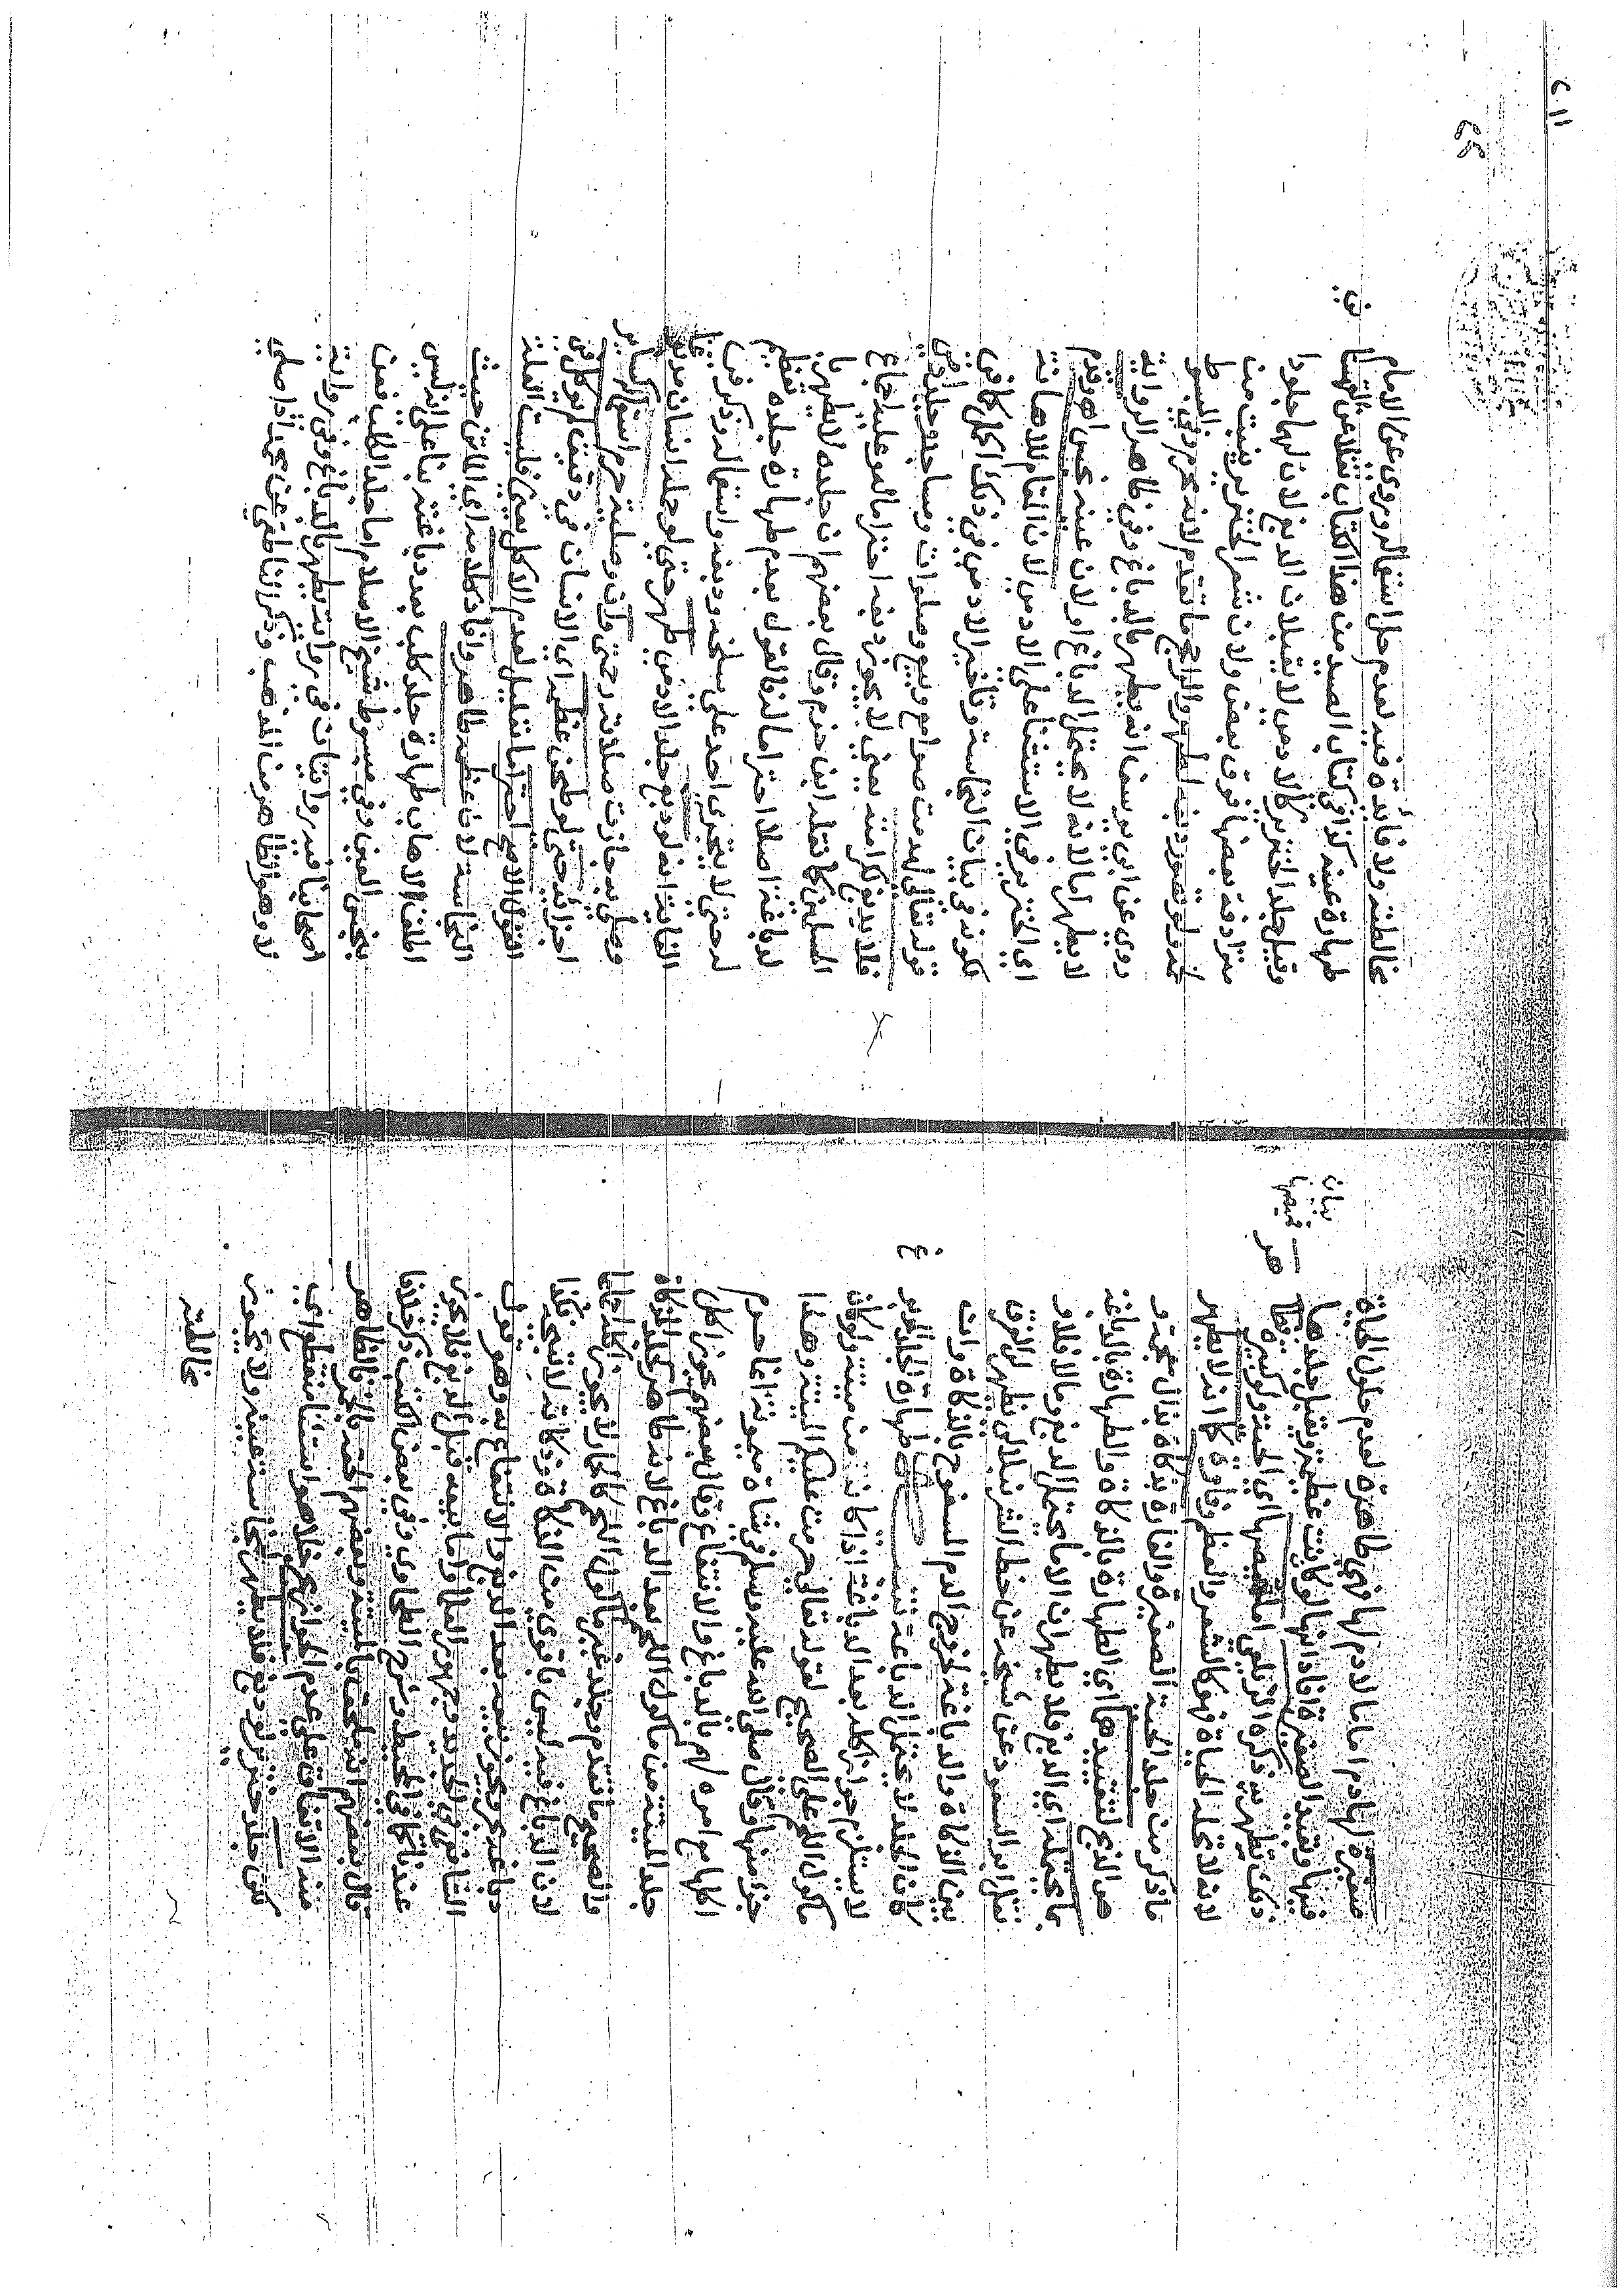 صغيرة لها دم اما ما لا دم لها فهي طاهرة لعدم حلول الحياة
فيها وتقييد الصغيرة افاد انها لو كانت عظيمة يقبل جلدها
تطهر به ذكره الزيلعي اما قميصها اي الحية ولو كبيرة فطا
هر
بيان
قميصها
لانه لا تحله الحياة فهو كالشعر والعظم وفارة كما انه لا يطهر
ما ذكر من جلد الحية الصغيرة والفارة بذكاة بذال معجمة و
هي الذبح لتقييدهما اي الطهارة بالذكاة والطهارة بالدباغة
بما يحتمله اي الدبغ فلا يطهران الا ما يحتمل الدبغ وما لا فلا و
نقل ابو السعود عن شيخه عن خط الشرنبلالي يظهر لي الفرق
بين الذكاة والدباغة لخروج الدم المسفوح بالذكاة وان
كان الجلد لا يحتمل الدباغة تتمة طهارة الجلد بالدبغ
لا يستلزم جواز اكله بعد الدباغة اذا كانت من ميتة ولو كان
ماكول اللحم على الصحيح لقوله تعالى حرمت عليكم الميتة وهذا
جزء منها وقال صلى الله عليه وسلم في شاة ميمونة انما حرم
اكلها مع امره لهم بالدباغ والانتفاع وقال بعضهم يجوز اكل
جلد الميتة من ماكول اللحم بعد الدباغ لانه طاهر كجلد الذكاة
والصحيح ما تقدم وجلد غير ماكول اللحم كالحمار لا يجوز اكله اجماعا
لان الدباغ فيه ليس باقوى من الذكاة وذكاته لا تبيحه فكذا
دباغه بحر ويجوز بيعه بعد الدبغ والانتفاع به وهو قول
الشافعي في الجديد وجمهور العلماء واما بيعه قبل الدبغ فلا يجوز
عندنا كما في المحيط وشرح الطحاوي وفي بعض الكتب ذكر خلافا
قال بعضهم انه ملحق بالميتة وبعضهم الحقه بالخمر فالظاهر
منه الاتفاق على عدم الجواز بحر خلا هو استثناء منقطع اي
لكن جلد خنزير لو دبغ فلا يطهر لنجاسة عينه ولا يجوز
مخالطته
٢١١
مخالطته ولا فايدة فيه لعدم حل استعماله وروي عن الامام
طهارة عينه كذا في كتاب الصيد من هذا الكتاب نقلا عن القهستا ني
وقيل جلد الخنزير كالادمي لا يقبلان الدبغ لان لهما جلودا
مترادفة بعضها فوق بعض ولان شعر الخنزير ينبت من
لحمه ولو تصور دبغه لطهر والراجح ما تقدم لانه محرم وفي المبسوط
روي عن ابي يوسف انه يطهر بالدباغ وفي ظاهر الرواية
لا يطهر اما لانه لا يحتمل الدباغ او لان عينه نجس اهـ وقدم
اي الخنزير في الاستثناء على الادمي لان المقام للاهانة
لكونه في بيان النجاسة وتاخير الادمي في ذلك اكمل كما في
قوله تعالى لهدمت صوامع وبيع وصلوات ومساجد وجلد ادمي
فلا يدبغ لكرامته يعني لا يجوز دبغه احتراما له وعليه اجماع
المسلمين كما نقله ابن حزم وقال بعضهم ان جلده لا يطهر با
لدباغة اصلا احتراما له فالقول بعدم طهارة جلده تعظيم
له حتى لا يتجرى احد على سلخه ودبغه واستعماله وذكر في
الغاية انه لو دبغ جلد الادمي طهر حتى لو جلد انسان مدبوغا
وصلي به جازت صلاته رحمتي وان وصلية حرم استعماله كساير
اجزائه حتى لو طحن عظمه اي الانسان في دقيق لم يوكل في
القول الاصح احتراما تعليل لعدم الاكل يعني فليست العلة
النجاسة لان عظمه طاهر وافاد كلامه اي الماتن حيث
اطلق الاهاب طهارة جلد كلب بعد دباغته بناء على انه ليس
بنجس العين وفي مبسوط شيخ الاسلام اما جلد الكلب فعن
اصحابنا فيه روايتان في رواية يطهر بالدباغ وفي رواية
لا وهو الظاهر من المذهب وذكر الناطفي عن محمد اذا صلي